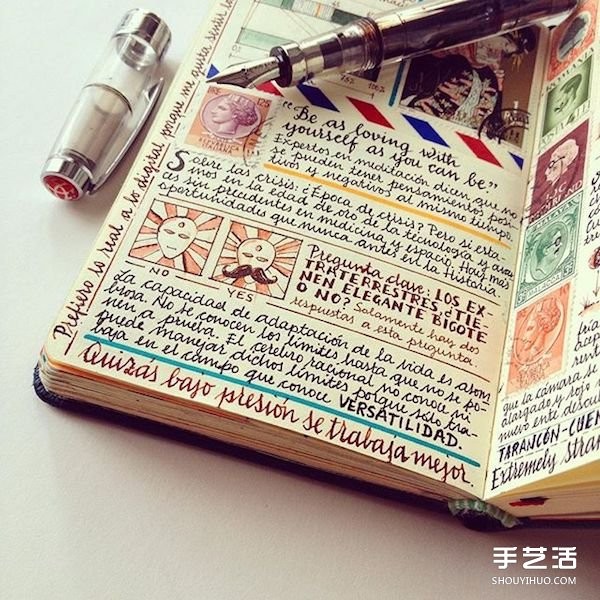 Prefiero lo real a lo digital porque me gusta sentir la
"Be as loving with
yourself as you can be"
Expertos en meditación dicen que no
se pueden tener pensamientos posi-
tivos y negativos al mismo tiempo.
Sobre las crisis: ¿Época de crisis? Pero si esta-
mos en la edad de oro de la tecnología y avan-
ces sin precedentes en medicina y espacio. Hay más
oportunidades que nunca antes en la Historia.
NO YES
Pregunta clave: LOS EX-
TRATERRESTRES ¿TIE-
NEN ELEGANTE BIGOTE
O NO? Solamente hay dos
respuestas a esta pregunta.
La capacidad de adaptación de la vida es asom
brosa. No se conocen los límites hasta que no se po-
nen a prueba. El cerebro racional no conoce ni
puede manejar dichos límites porque sólo tra-
baja en el campo que conoce VERSATILIDAD.
Quizás bajo presión se trabaja mejor.
que la cámara se
alargado y rojo
nuevo ente descu
TARANCÓN-CUEN
Extremely stran
手艺活
SHOUYIHUO.COM